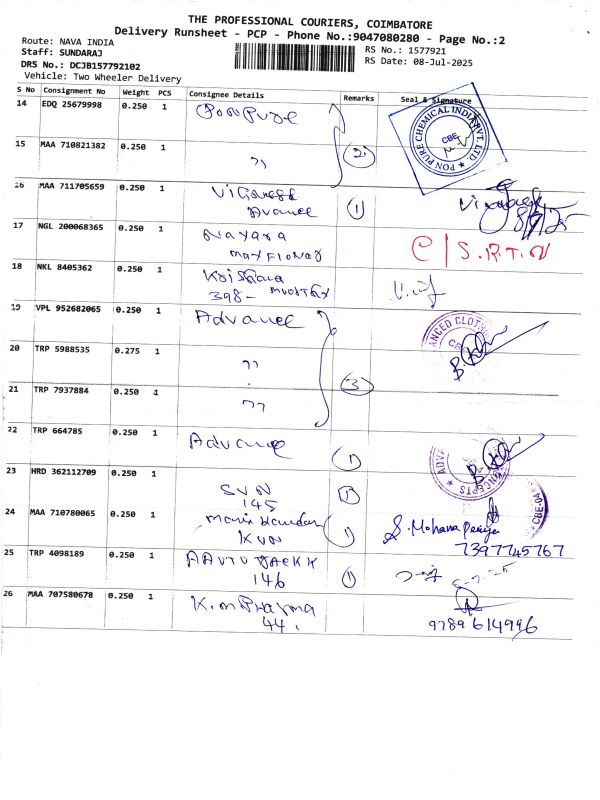 THE PROFESSIONAL COURIERS, COIMBATORE
Delivery Runsheet - PCP - Phone No.:9047080280 - Page No.:2
Route: NAVA INDIA
Staff: SUNDARAJ
RS No.: 1577921
DRS No.: DCJB157792102
RS Date: 08-Jul-2025
Vehicle: Two Wheeler Delivery
S No Consignment No Weight PCS Consignee Details Remarks Seal & Signature
14 EDQ 25679998 0.250 1 PonPure
PON PURE CHEMICAL INDIA PVT. LTD CBE
15 MAA 710821382 0.250 1 " 2
16 MAA 711705659 0.250 1 Vignesh 1
Avance
17 NGL 200068365 0.250 1 Nayara C/S.R.T.N
18 NKL 8405362 0.250 1 Krishna
398-
19 VPL 952682065 0.250 1 Advance
20 TRP 5988535 0.275 1 "
21 TRP 7937884 0.250 1 " 3
22 TRP 664785 0.250 1 Advance 1
23 HRD 362112709 0.250 1 SVN 1
145
24 MAA 710780065 0.250 1 1 S. Mohana Periya
KVN 7397745767
25 TRP 4098189 0.250 1 1
146
26 MAA 707580678 0.250 1 K.m Pharma
44. 9789614996